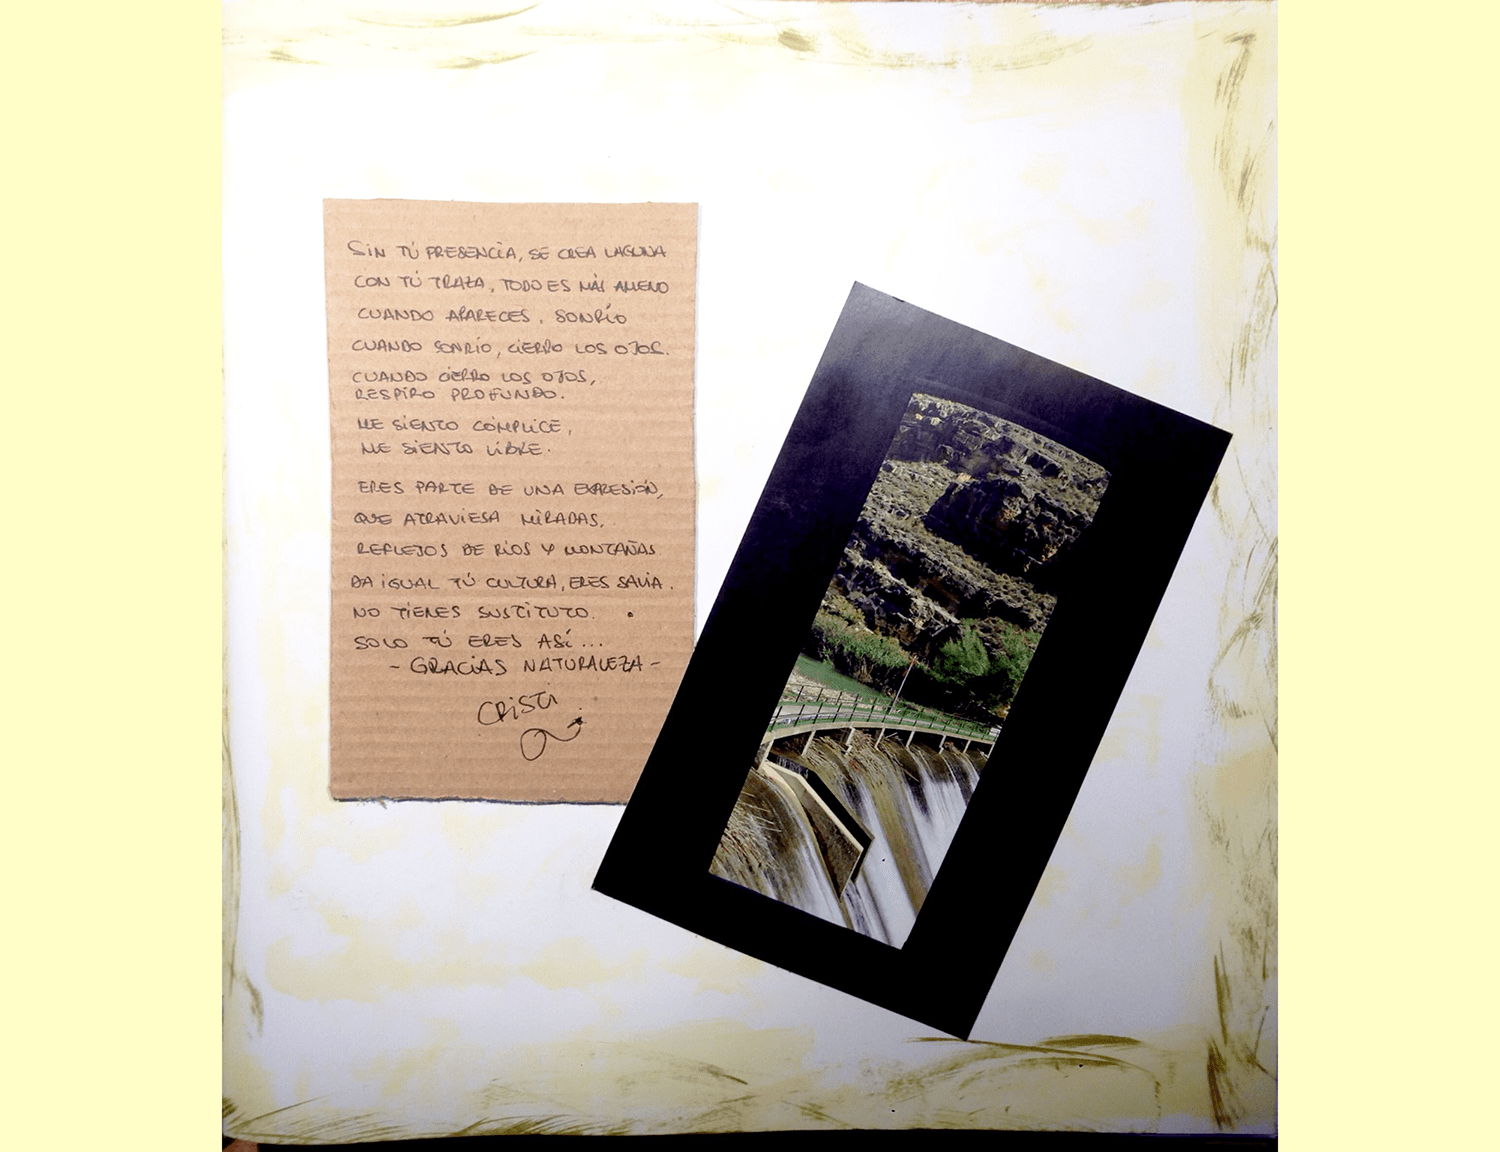 SiN TÚ PRESENCiA, SE CREA LAGUNA
CON TÚ TRAZA, TODO ES MÁS AMENO
CUANDO APARECES, SONRÍO
CUANDO SONRÍO, CIERRO LOS OJOS.
CUANDO CIERRO LOS OJOS,
RESPIRO PROFUNDO.
ME SIENTO CÓMPLICE,
ME SIENTO LIBRE.
ERES PARTE DE UNA EXPRESIÓN,
QUE ATRAVIESA MIRADAS,
REFLEJOS DE RÍOS Y MONTAÑAS.
DA IGUAL TÚ CULTURA, ERES SAVIA.
NO TIENES SUSTITUTO.
SOLO TÚ ERES ASÍ...
- GRACIAS NATURALEZA -
CRISTI